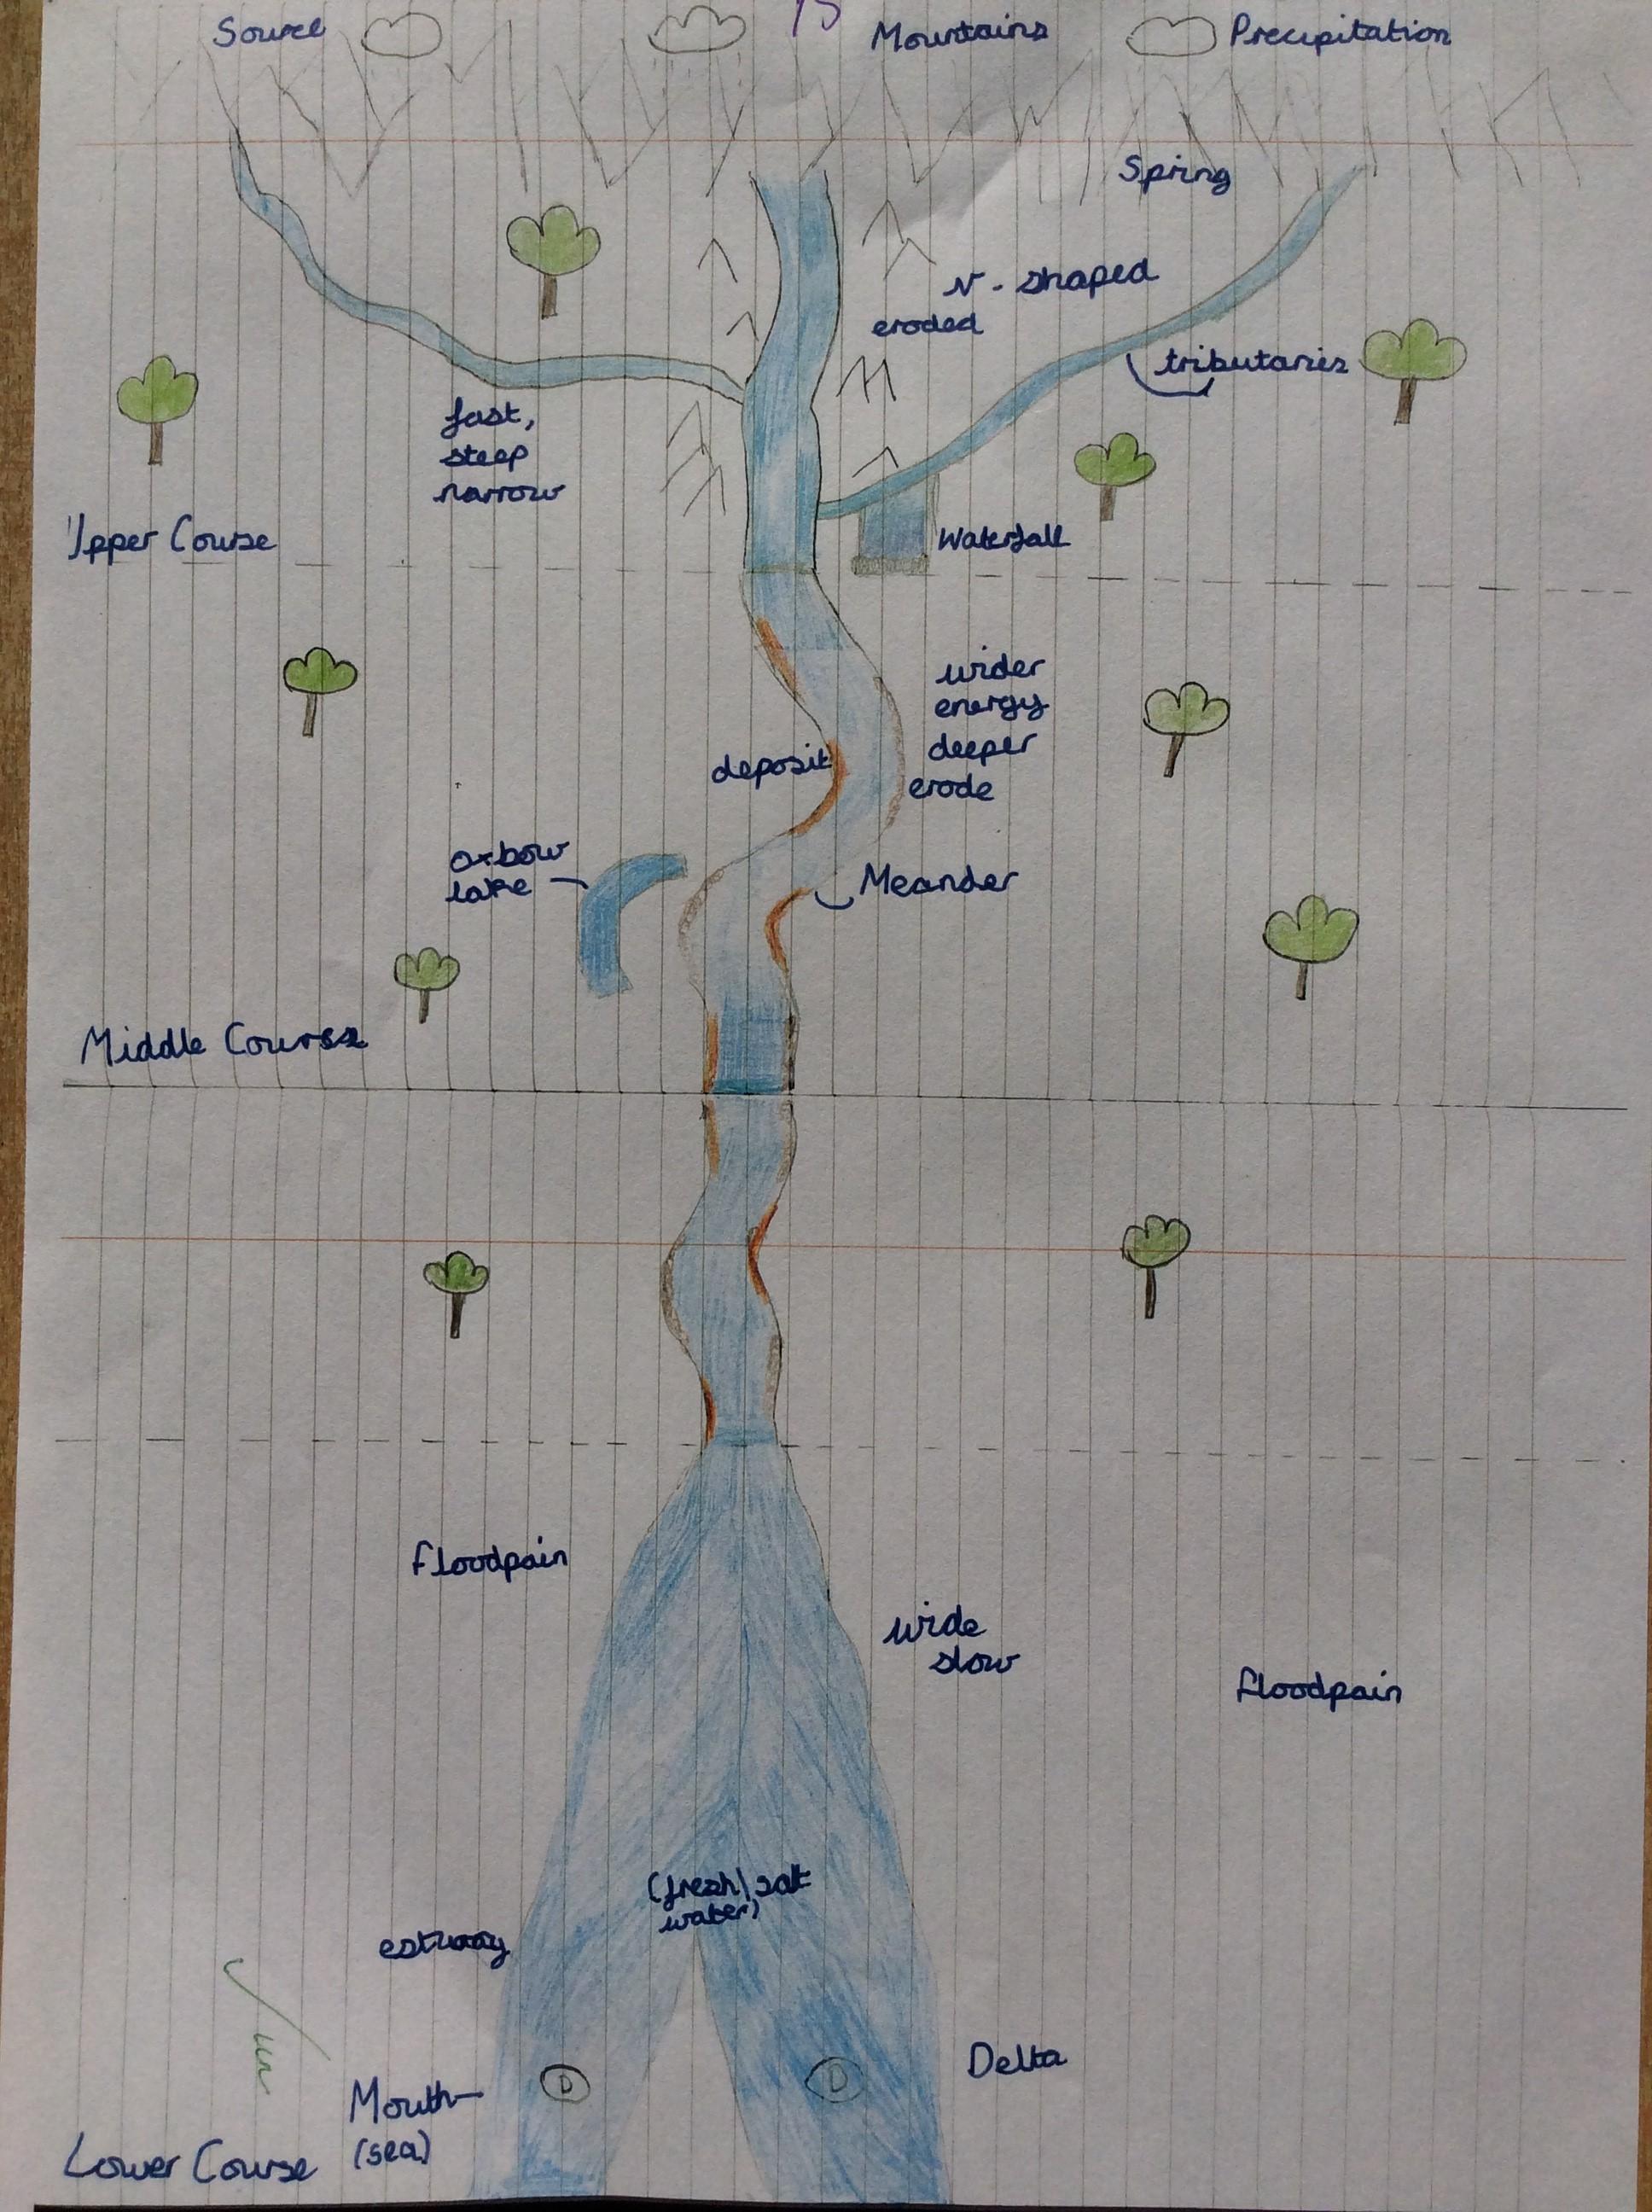 Source
Mountains
Precipitation
Spring
V-shaped
eroded
tributaries
fast,
steep
narrow
Upper Course
Waterfall
wider
energy
deeper
erode
deposit
oxbow
lake
Meander
Middle Course
Floodpain
wide
slow
floodpain
(fresh\salt
water)
estuary
Delta
D
D
Mouth
(sea)
Lower Course